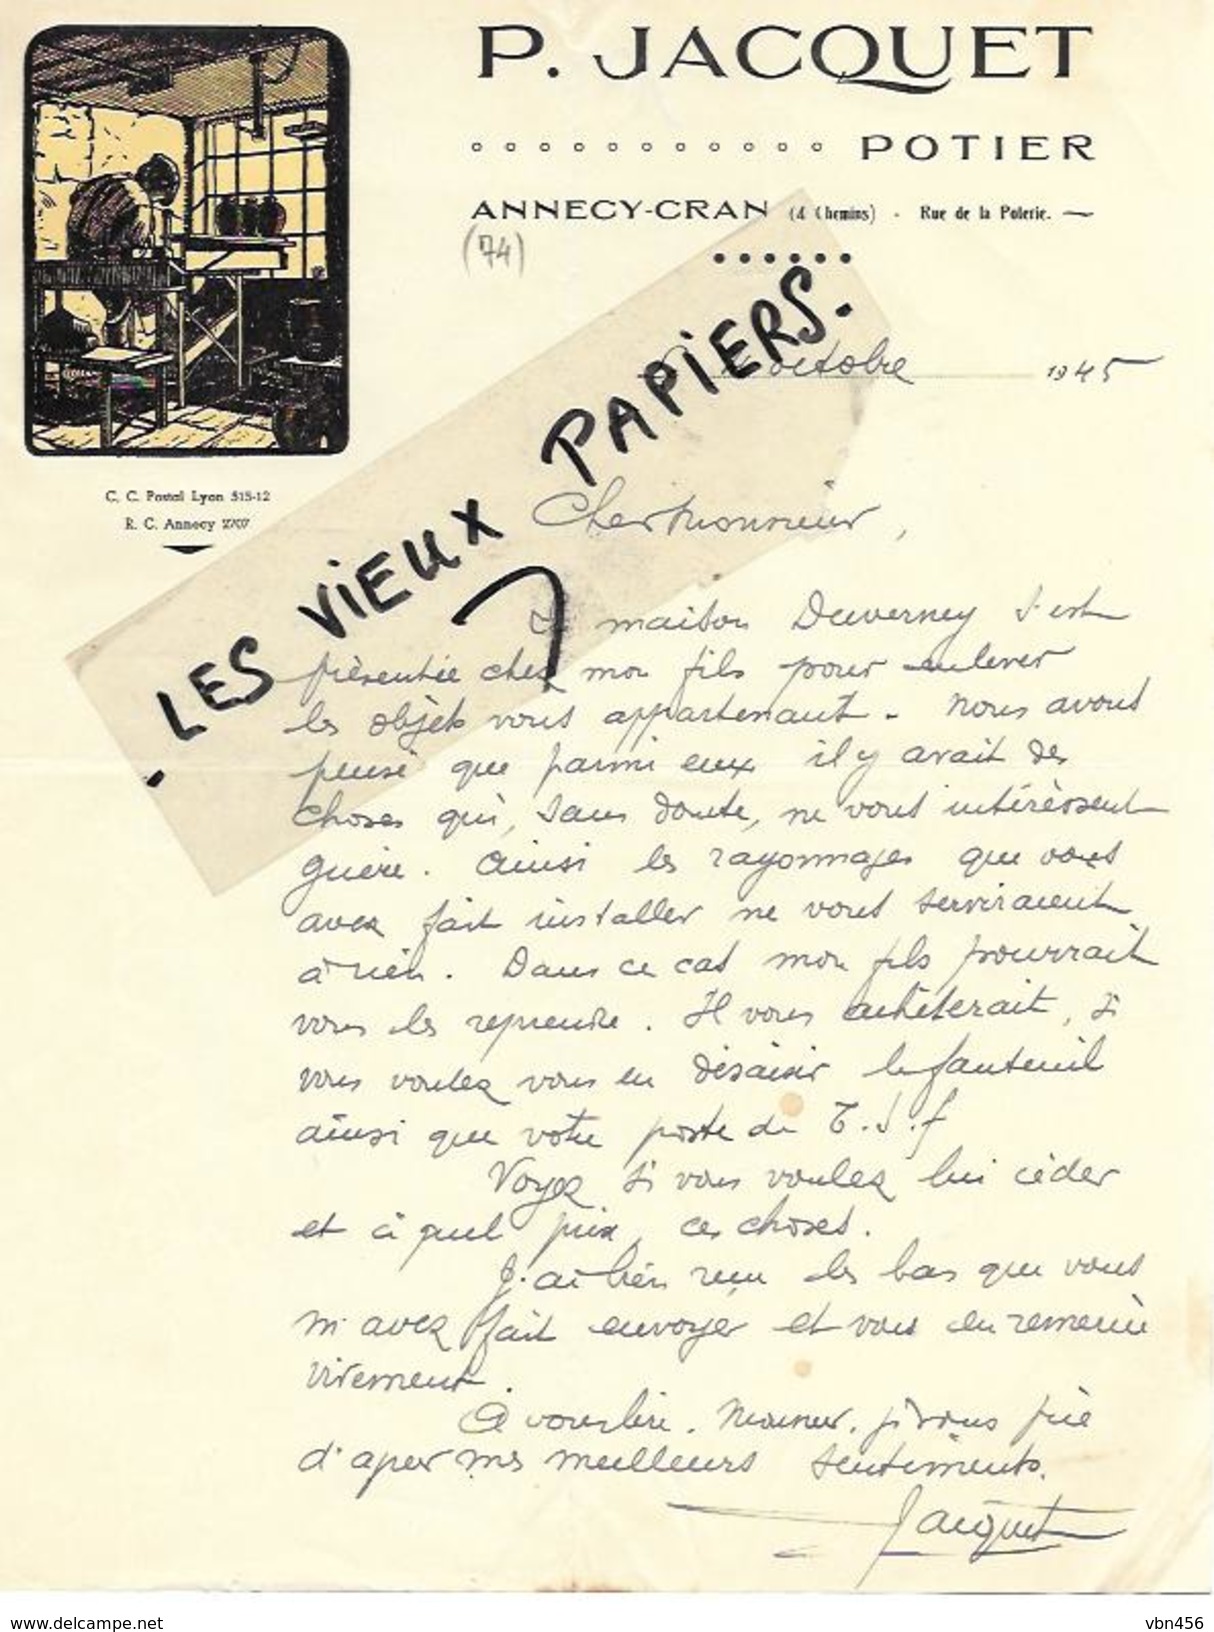 P. JACQUET
POTIER
ANNECY-CRAN (4 Chemins) - Rue de la Poterie.
(74)
octobre 1945
C. C. Postal Lyon 515-12
R. C. Annecy 2707
. LES VIEUX PAPIERS.
Cher Monsieur,
La maison Duverney s'est
présentée chez mon fils pour enlever
les objets vous appartenant. Nous avons
pensé que parmi eux il y avait des
choses qui, sans doute, ne vous intéressent
guère. Ainsi les rayonnages que vous
avez fait installer ne vous serviraient
à rien. Dans ce cas mon fils pourrait
vous les reprendre. Il vous achèterait, si
vous voulez vous en désaisir le fauteuil
ainsi que votre poste de T.S.f
Voyez si vous voulez lui céder
et à quel prix, ces choses.
J'ai bien reçu les bas que vous
m'avez fait envoyer et vous en remercie
vivement.
A vous lire, Monsieur, je vous prie
d'agréer mes meilleurs sentiments.
Jacquet
www.delcampe.net
vbn456